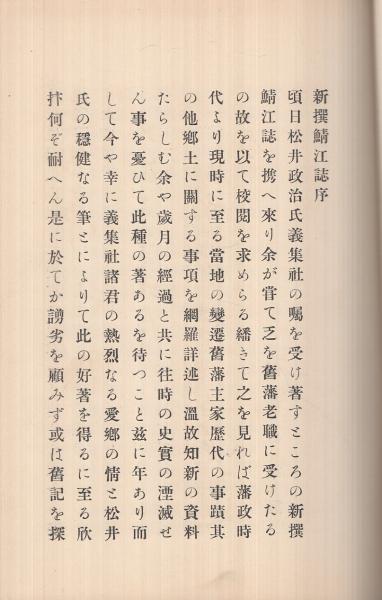 新撰鯖江誌序
頃日松井政治氏義集社の囑を受け著すところの新撰
鯖江誌を携へ來り余が甞て乏を舊藩老職に受けたる
の故を以て校閱を求めらる繙きて之を見れば藩政時
代より現時に至る當地の變遷舊藩主家歷代の事蹟其
の他鄕土に關する事項を網羅詳述し溫故知新の資料
たらしむ余や歲月の經過と共に往時の史實の湮滅せ
ん事を憂ひて此種の著あるを待つこと玆に年あり而
して今や幸に義集社諸君の熱烈なる愛鄕の情と松井
氏の穩健なる筆とによりて此の好著を得るに至る欣
抃何ぞ耐へん是に於てか謭劣を顧みず或は舊記を探